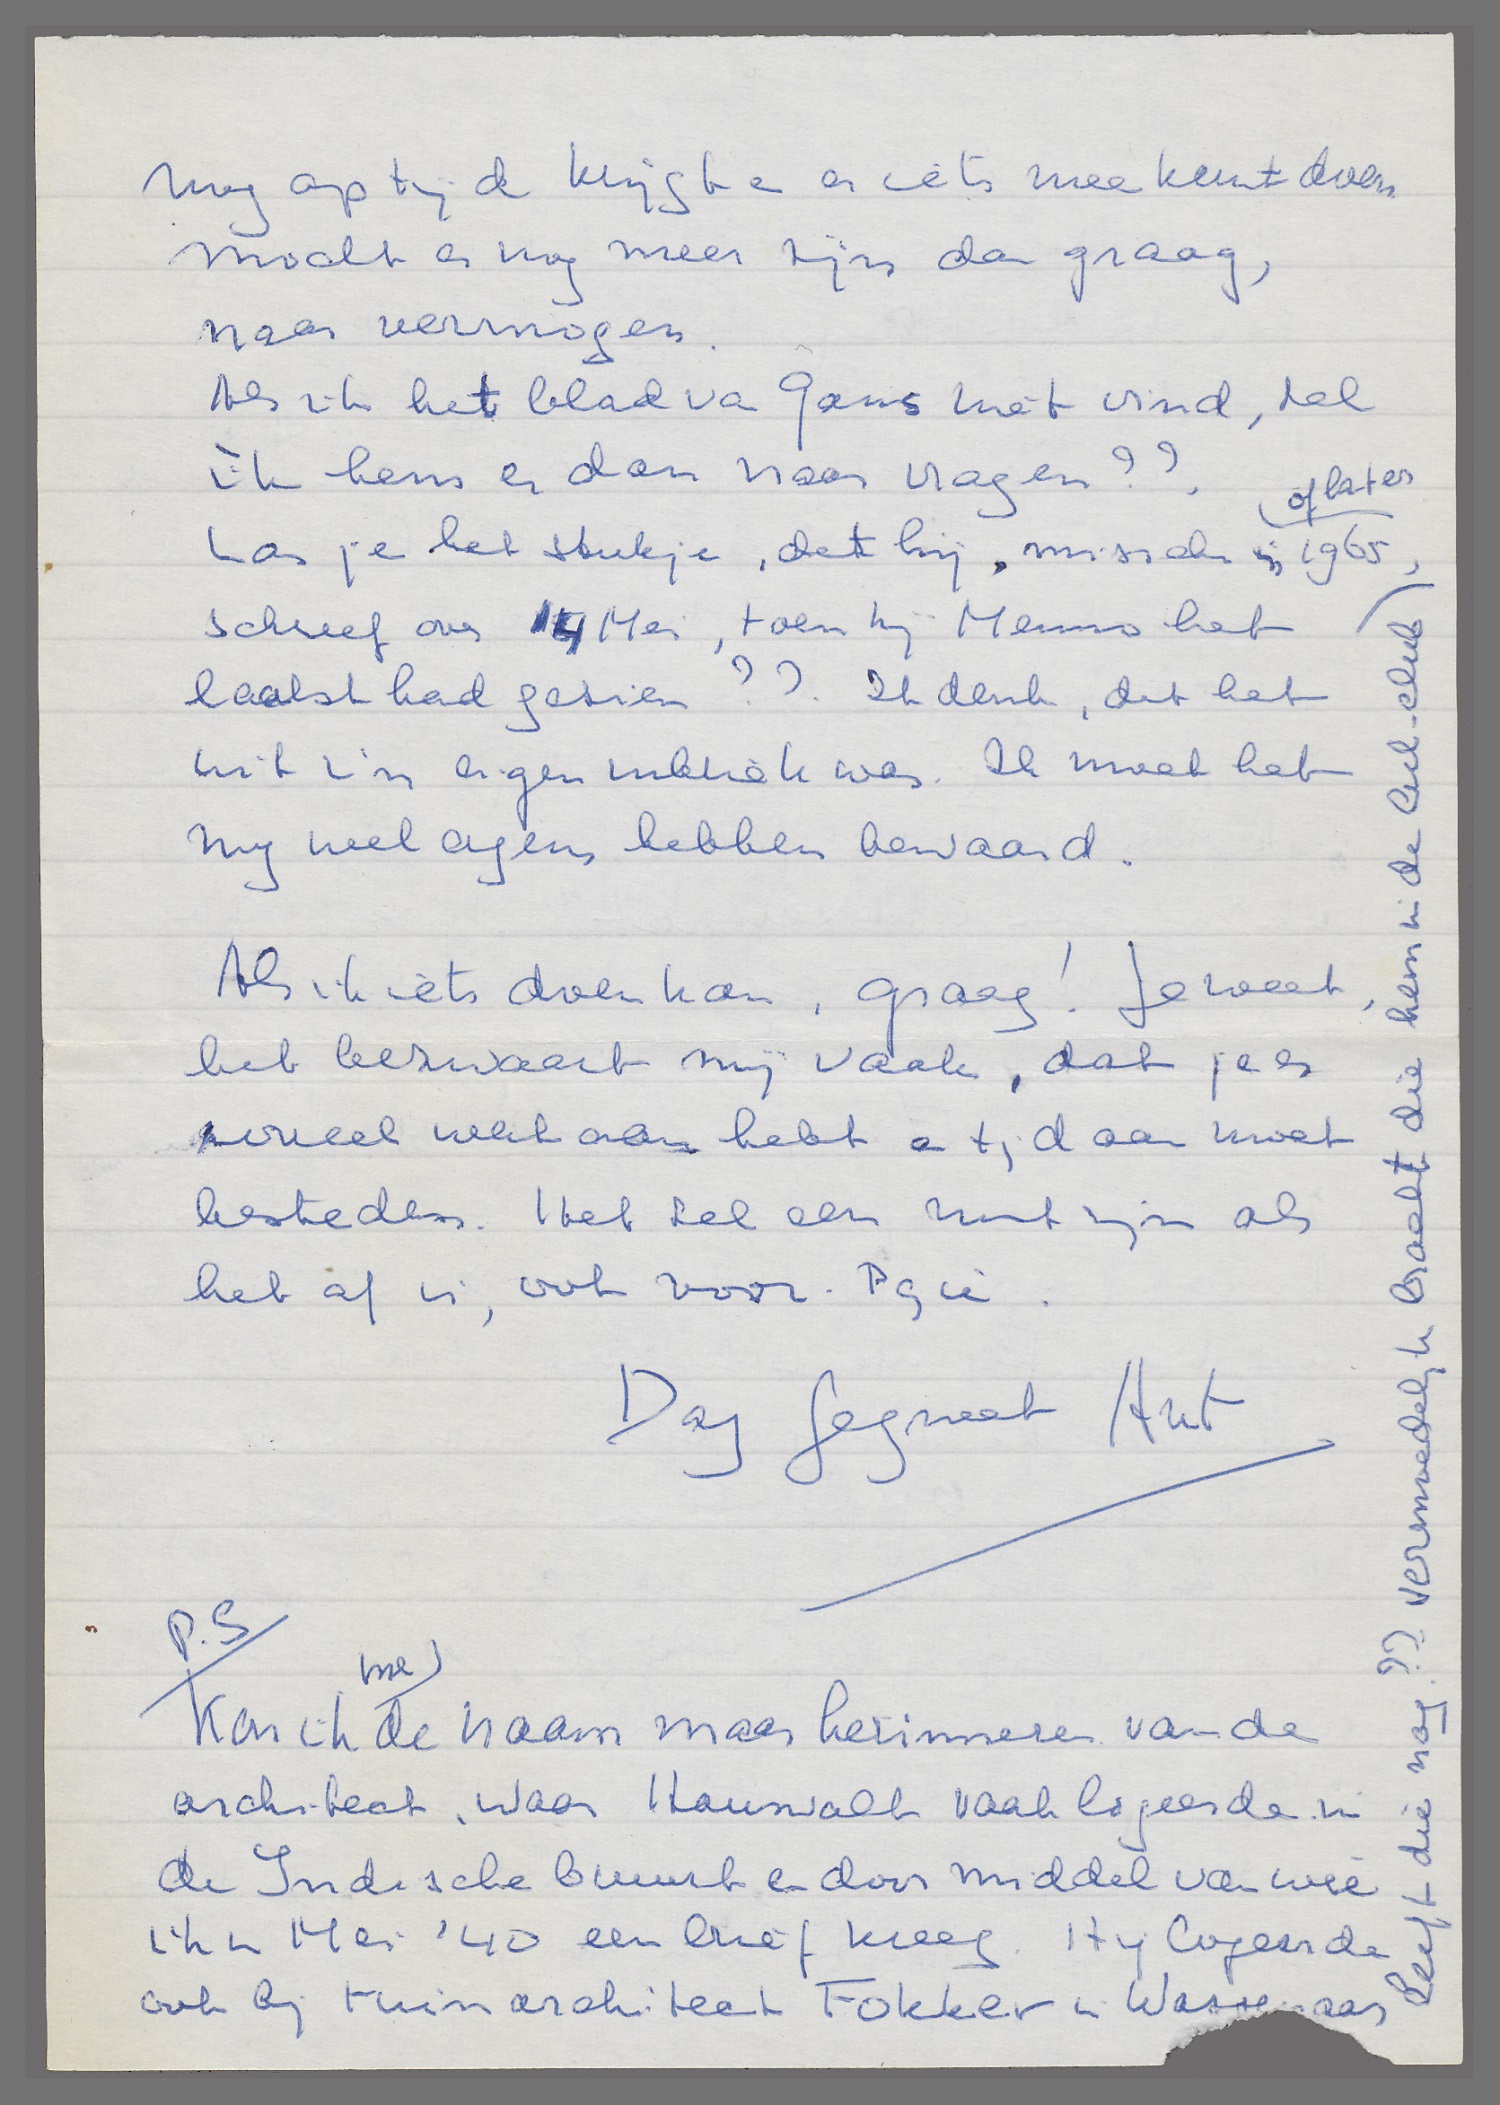 nog op tijd krijgt en er iets mee kunt doen
Mocht er nog meer zijn dan graag,
naar vermogen.
Als ik het blad van Gans niet vind, zal
ik hem er dan naar vragen??.
Las je het stukje, dat hij, misschien in 1965,
of later
schreef over 14 Mei, toen hij Menno het
laatst had gezien??. Ik denk, dat het
uit z'n eigen rubriek was. Ik moet het
nog wel ergens hebben bewaard.
Als ik iets doen kan, graag! Je weet,
het bezwaart mij vaak, dat je er
zoveel werk aan hebt en tijd aan moet
besteden. Het zal een rust zijn als
het af is, ook voor
Dag gegroet Ant
P.S
Kon ik me de naam maar herinneren van de
architect, waar Hauswalt vaak logeerde in
de Indische buurt en door middel van wie
ik in Mei '40 een brief kreeg. Hij logeerde
ook bij tuinarchitect Fokker in Wassenaar
Leeft die nog?? Vermoedelijk bracht die hem in de club)